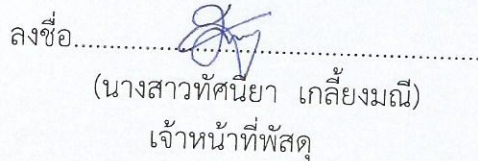 ลงชื่อ................................................................
(นางสาวทัศนียา เกลี้ยงมณี)
เจ้าหน้าที่พัสดุ